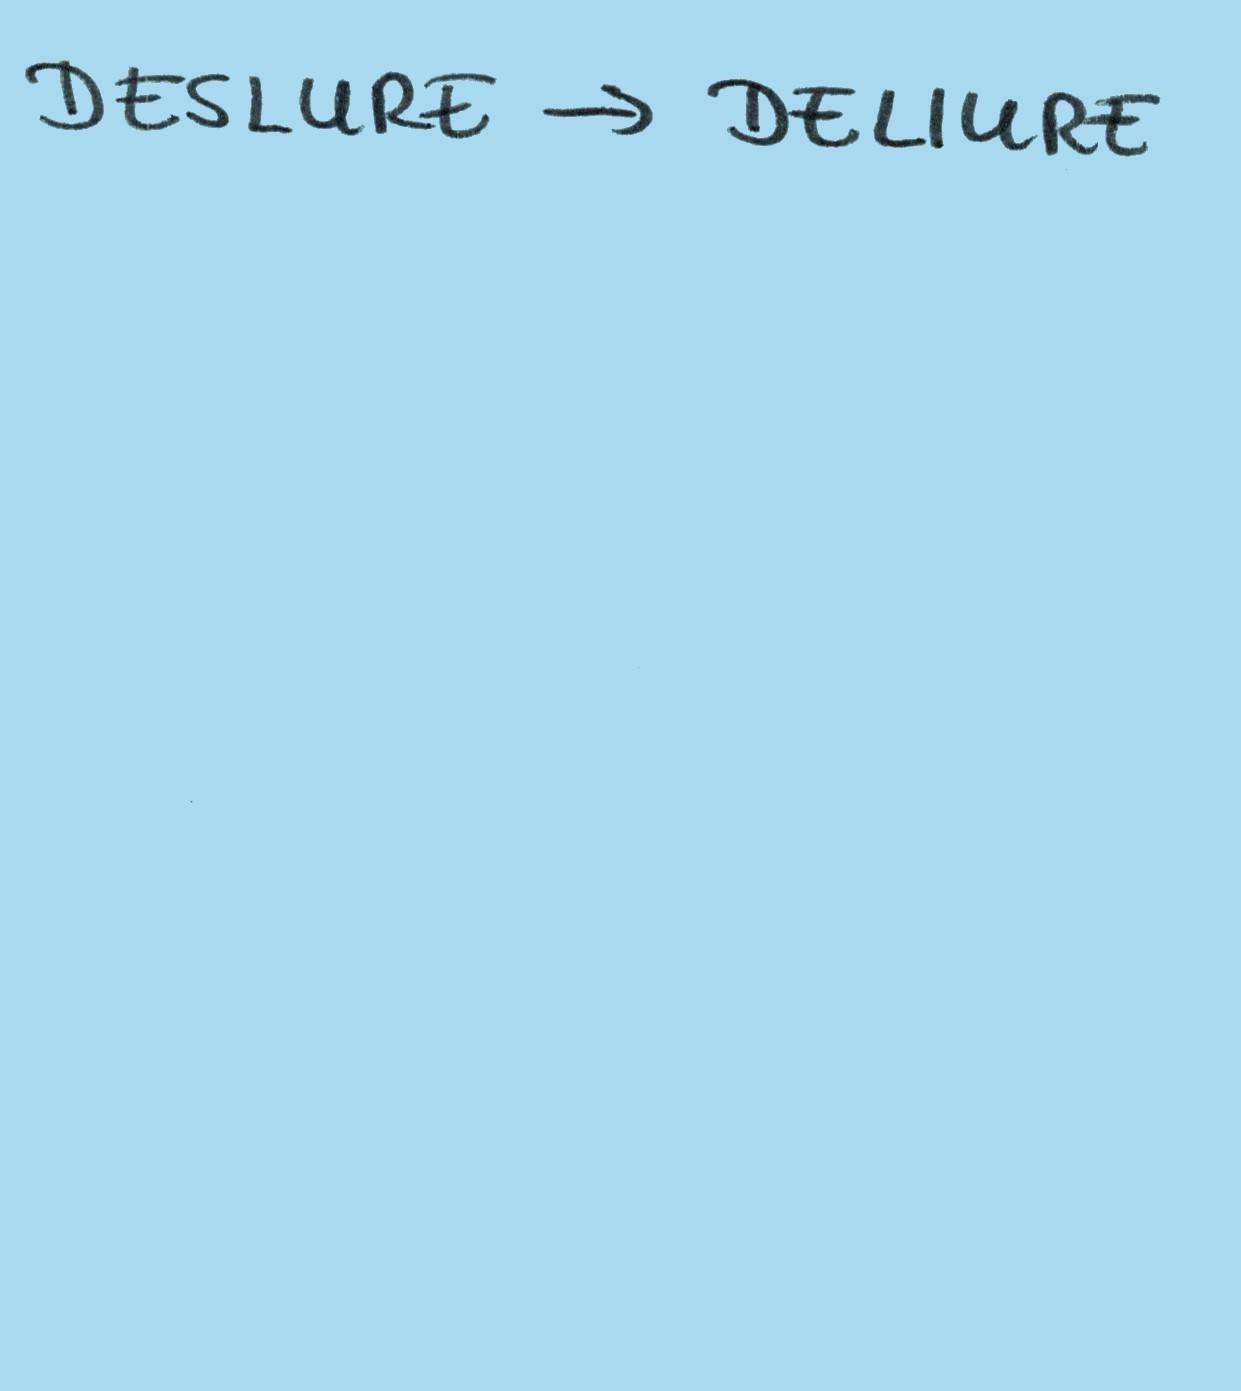 DESLURE → DELIURE